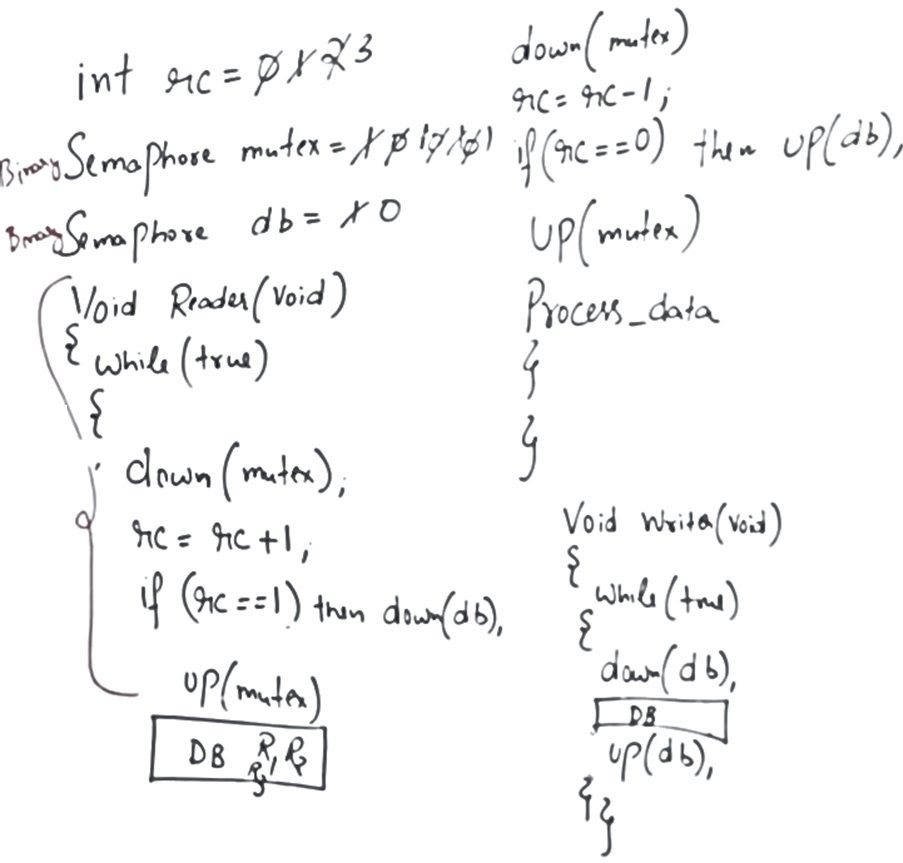 int rc = 0 1 2 3
Binary Semaphore mutex = 1 0 1 0 1 0 1
Binary Semaphore db = 1 0
Void Reader(void)
{ while(true)
{
down(mutex);
rc = rc +1;
if (rc==1) then down(db),
up(mutex)
DB R1 R2
R3
down(mutex)
rc = rc-1;
if(rc==0) then up(db),
up(mutex)
Process_data
}
}
Void writer(void)
{
while(true)
{
down(db),
DB
up(db),
}}